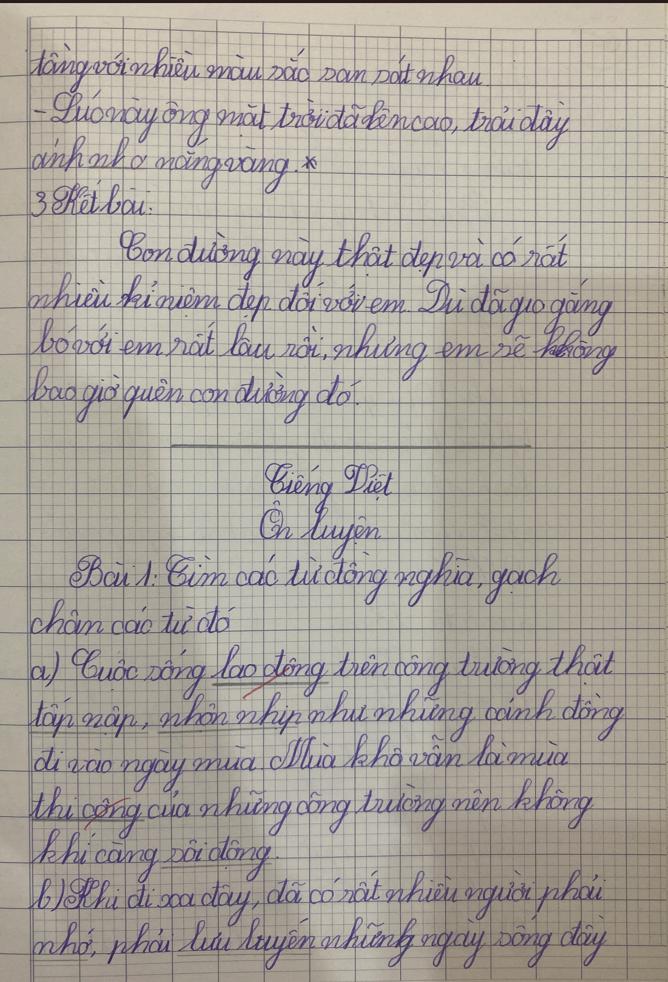 tầng với nhiều màu sắc san sát nhau
- Lúc này ông mặt trời đã lên cao, trải đầy
ánh nhơ nắng vàng. *
3 Kết bài:
Con đường này thật đẹp và có rất
nhiều kỉ niệm đẹp đối với em. Dù đã gio gắng
bó với em rất lâu rồi, nhưng em sẽ không
bao giờ quên con đường đó.
Tiếng Việt
Ôn luyện
Bài 1: Tìm các từ đồng nghĩa, gạch
chân các từ đó
a) Cuộc sống lao động trên công trường thật
tấp nập, nhộn nhịp như những cánh đồng
đi vào ngày mùa. Mùa khô vẫn là mùa
thi công của những công trường nên không
khí càng sôi động.
b) Khi đi xa đây, đã có rất nhiều người phải
nhớ, phải lưu luyến những ngày sống đầy